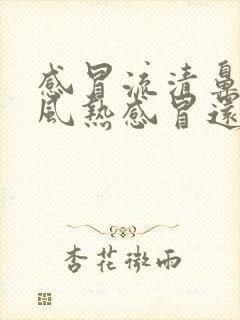 感冒流清鼻
風熱感冒還
杏花微雨